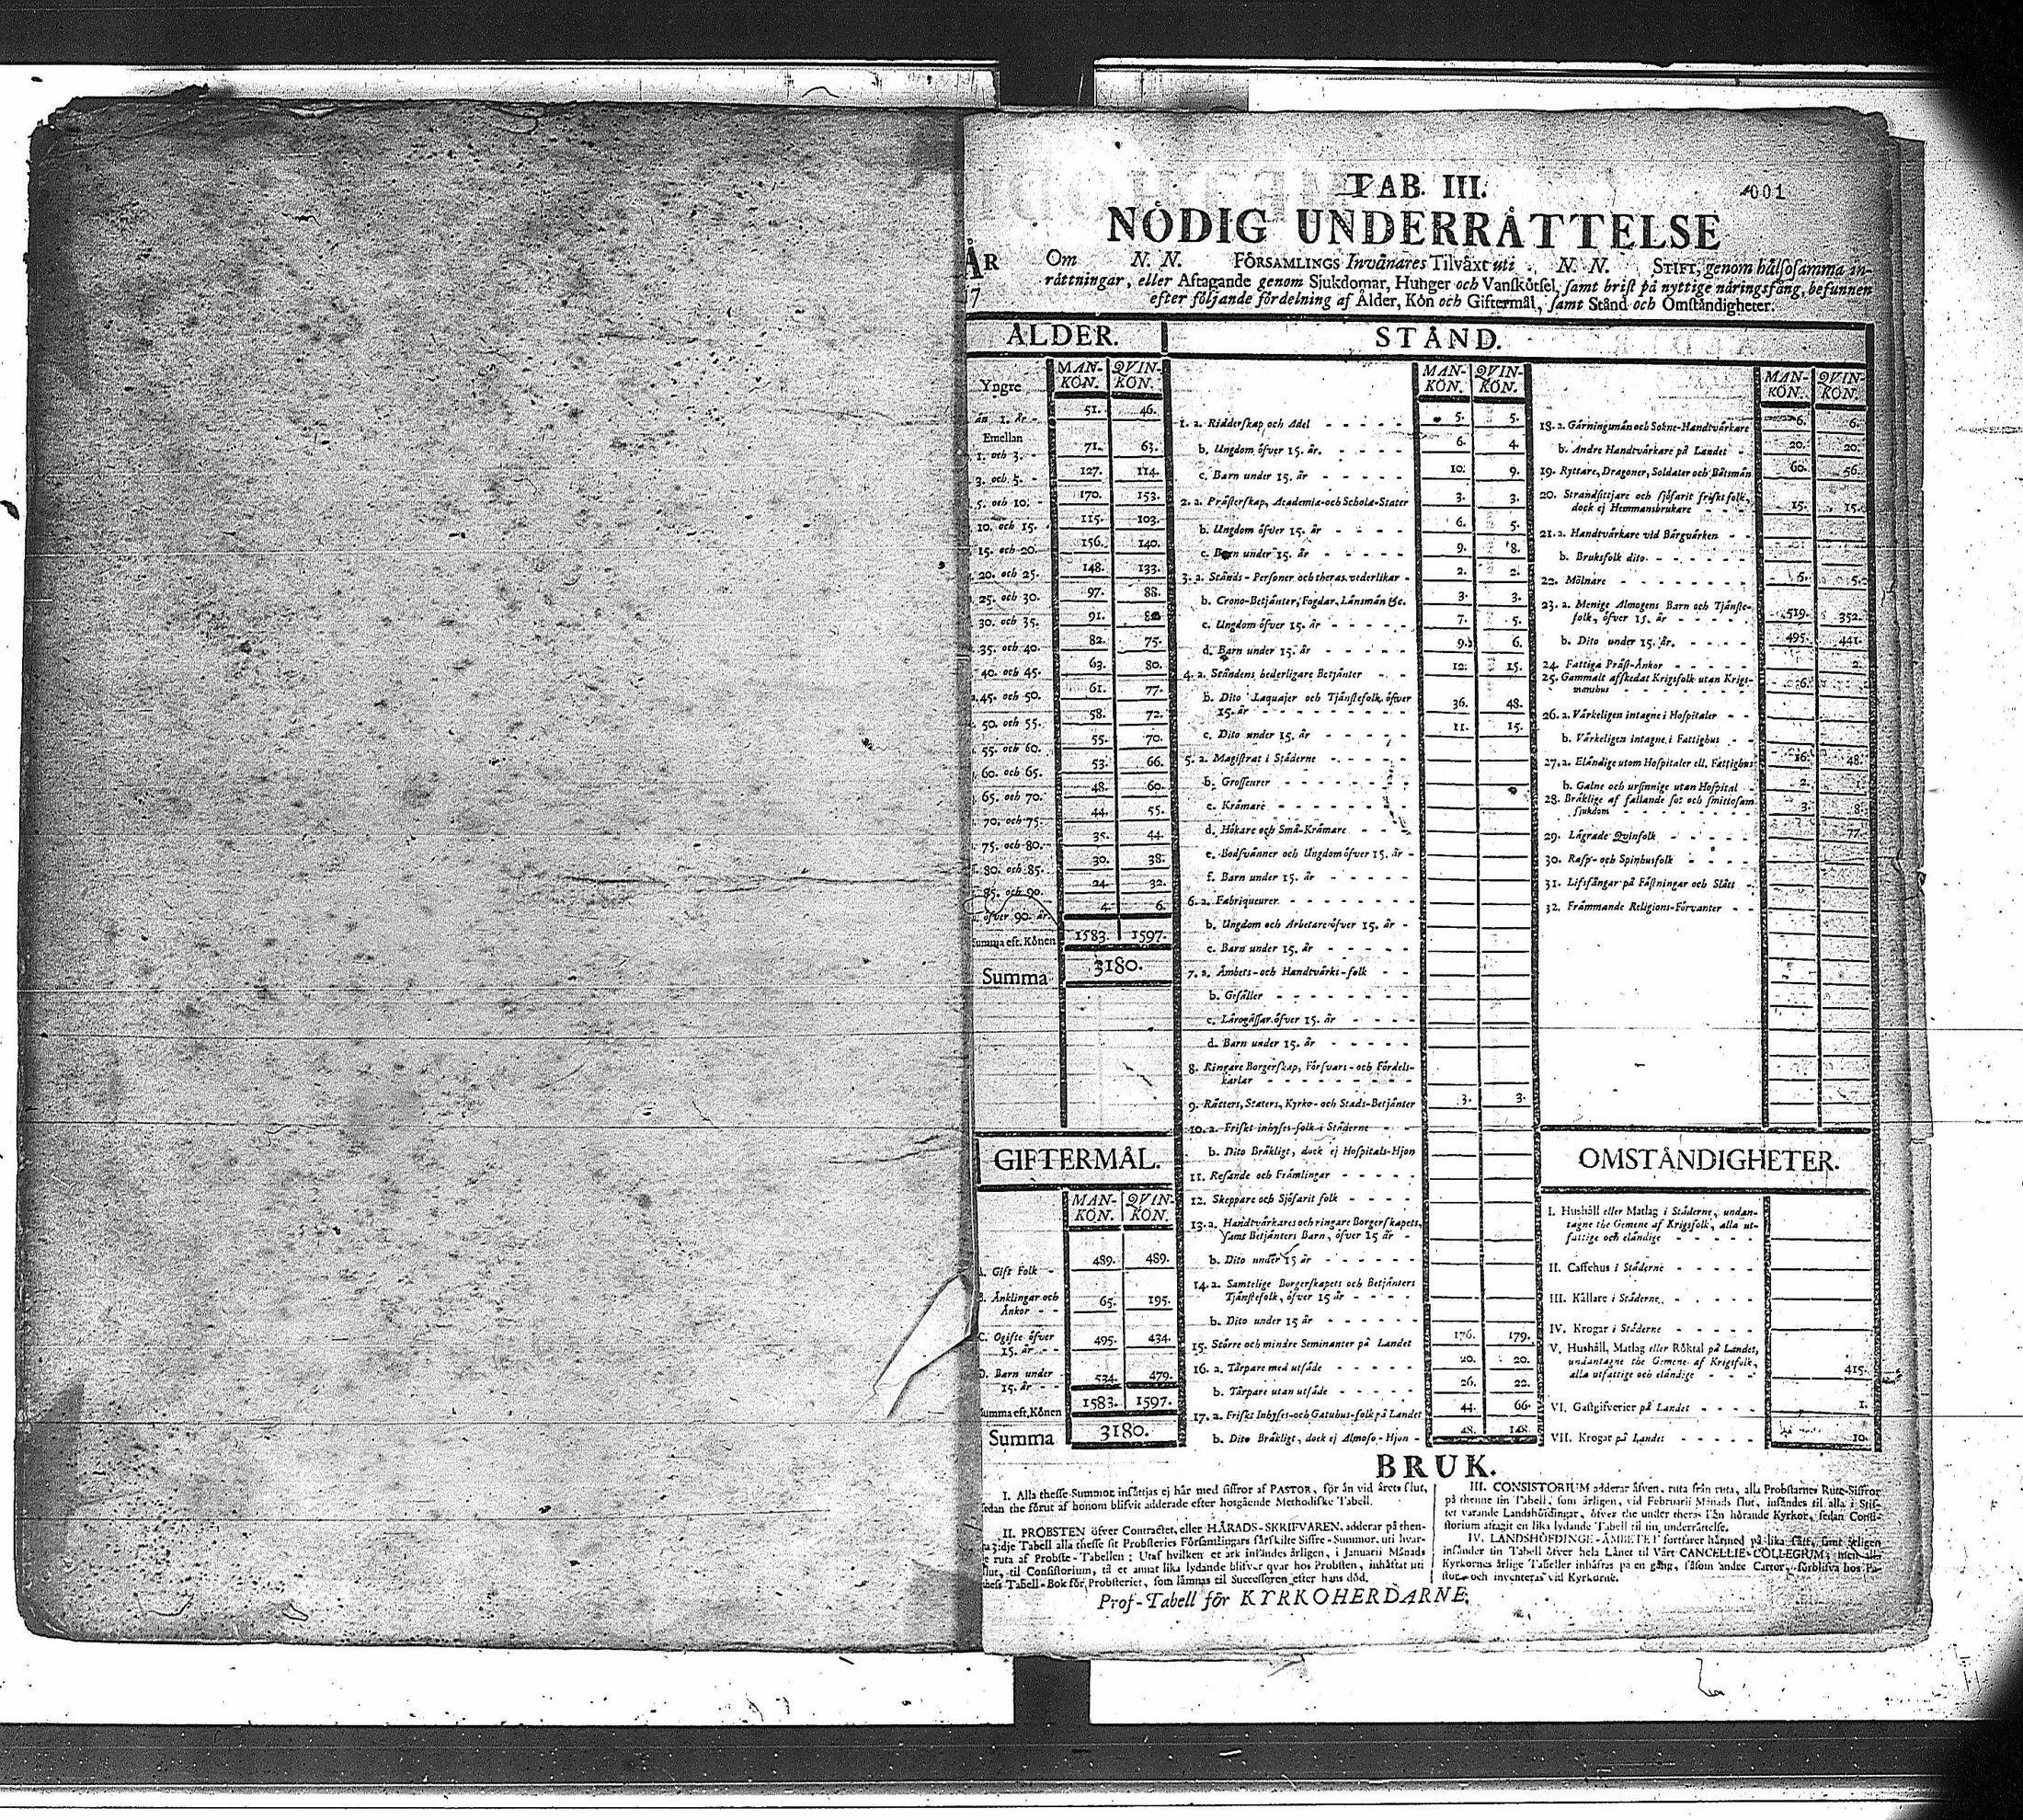 TAB. III.
001
NÖDIG UNDERRÅTTELSE
ÅR
17
Om N. N. FÖRSAMLINGS Invånares Tilväxt uti N. N. STIFT, genom hålsosamma in-
råttningar, eller Aftagande genom Sjukdomar, Hunger och Vanskötsel, samt brist på nyttige näringsfång, befunnen
efter följande fördelning af Ålder, Kön och Giftermål, samt Stånd och Omståndigheter.
ÅLDER.
MAN-KÖN. QVIN-KÖN.
Yngre
än 1. År - 51. 46.
Emellan
1. och 3. - 71. 63.
3. och 5. - 127. 114.
5. och 10. - 170. 153.
10. och 15. 115. 103.
15. och 20. 156. 140.
20. och 25. 148. 133.
25. och 30. 97. 88.
30. och 35. 91.
35. och 40. 82. 75.
40. och 45. 63. 80.
45. och 50. 61. 77.
50. och 55. 58. 72.
55. och 60. 55. 70.
60. och 65. 53. 66.
65. och 70. 48. 60.
70. och 75. 44. 55.
75. och 80. 35. 44.
80. och 85. 30. 38.
85. och 90. 24. 32.
öfver 90. år. 4. 6.
Summa eft. Könen 1583. 1597.
Summa 3180.
GIFTERMÅL.
MAN-KÖN. QVIN-KÖN.
A. Gift Folk - 489. 489.
B. Änklingar och
Änkor - - 65. 195.
C. Ogifte öfver
15. år - - 495. 434.
D. Barn under
15. år - - 534. 479.
Summa eft. Könen 1583. 1597.
Summa 3180.
STÅND.
MAN-KÖN. QVIN-KÖN.
1. a. Ridderskap och Adel 5. 5.
b. Ungdom öfver 15. år. 6. 4.
c. Barn under 15. år 10. 9.
2. a. Prästerskap, Academiæ-och Scholæ-Stater 3. 3.
b. Ungdom öfver 15. år 6. 5.
c. Barn under 15. år 9. 8.
3. a. Stånds-Personer och theras vederlikar - 2. 2.
b. Crono-Betjänter, Fogdar, Länsmän &c. 3. 3.
c. Ungdom öfver 15. år 7. 5.
d. Barn under 15. år 9. 6.
4. a. Ståndens hederligare Betjänter 12. 15.
b. Dito Laquajer och Tjänstefolk, öfver
15. år 36. 48.
c. Dito under 15. år 11. 15.
5. a. Magistrat i Städerne
b. Grosseurer
c. Krämare
d. Hökare och Små-Krämare
e. Bodsvänner och Ungdom öfver 15. år -
f. Barn under 15. år
6. a. Fabriqueurer
b. Ungdom och Arbetare öfver 15. år -
c. Barn under 15. år
7. a. Ämbets-och Handtvärks-folk
b. Gesäller
c. Lärogåssar öfver 15. år
d. Barn under 15. år
8. Ringare Borgerskap, Försvars-och Fördels-
karlar
9. Rätters, Staters, Kyrko-och Stads-Betjänter 3. 3.
10. a. Friskt inhyses-folk i Städerne
b. Dito Bräkligt, dock ej Hospitals-Hjon
11. Resande och Främlingar
12. Skeppare och Sjöfarit folk
13. a. Handtvärkares och ringare Borgerskapets,
samt Betjänters Barn, öfver 15 år -
b. Dito under 15 år
14. a. Samtelige Borgerskapets och Betjänters
Tjänstefolk, öfver 15 år
b. Dito under 15 år
15. Större och mindre Seminanter på Landet 176. 179.
16. a. Tårpare med utsäde 20. 20.
b. Tårpare utan utsäde 26. 22.
17. a. Friskt Inhyses-och Gatuhus-folk på Landet 44. 66.
b. Dito Bräkligt, dock ej Almoso-Hjon - 48. 148.
MAN-KÖN. QVIN-KÖN.
18. a. Gärningsmän och Sokne-Handtvärkare 6. 6.
b. Andre Handtvärkare på Landet 20. 20.
19. Ryttare, Dragoner, Soldater och Båtsmän 60. 56.
20. Strandsittjare och sjöfarit friskt folk,
dock ej Hemmansbrukare 15. 15.
21. a. Handtvärkare vid Bärgvärken
b. Bruksfolk dito
22. Mölnare 5. 5.
23. a. Menige Almogens Barn och Tjänste-
folk, öfver 15. år 519. 352.
b. Dito under 15. år. 495. 441.
24. Fattiga Präst-Änkor 2.
25. Gammalt affskedat Krigsfolk utan Krigs-
manshus 6.
26. a. Värkeligen intagne i Hospitaler
b. Värkeligen intagne i Fattighus
27. a. Eländige utom Hospitaler ell. Fattighus 16. 48.
b. Galne och ursinnige utan Hospital 2.
28. Bräklige af fallande sot och smittosam
sjukdom 3. 8.
29. Lägrade Qvinfolk 77.
30. Rasp-och Spinhusfolk
31. Lifsfångar på Fästningar och Slått
32. Främmande Religions-Förvanter
OMSTÅNDIGHETER.
I. Hushåll eller Matlag i Städerne, undan-
tagne the Gemene af Krigsfolk, alla ut-
fattige och eländige
II. Caffehus i Städerne
III. Källare i Städerne
IV. Krogar i Städerne
V. Hushåll, Matlag eller Röktal på Landet,
undantagne the Gemene af Krigsfolk,
alla utfattige och eländige 415.
VI. Gästgifverier på Landet 1.
VII. Krogar på Landet 10.
BRUK.
I. Alla thesse Summor insättjas ej här med siffror af PASTOR, för än vid årets slut,
sedan the förut af honom blifvit adderade efter hosgående Methodiske Tabell.
II. PROBSTEN öfver Contractet, eller HÄRADS-SKRIFVAREN, adderar på then-
na 3:dje Tabell alla thesse sit Probsteries Församlingars särskilte Siffre-Summor, uti hvar-
je ruta af Probste-Tabellen: Utaf hvilken et ark insändes årligen, i Januarii Månads
slut, til Consistorium, tå et annat lika lydande blifver qvar hos Probsten, inhäftat uti
thess Tabell-Bok för Probsteriet, som lämnas til Successoren efter hans död.
III. CONSISTORIUM adderar äfven, ruta från ruta, alla Probstarnes Rute-Siffror
på thenne sin Tabell, som årligen, vid Februarii Månads slut, insändes til alla i Stif-
tet varande Landshöfdingar, öfver the under theras Län hörande Kyrkor, sedan Consi-
storium aftagit en lika lydande Tabell til sin underrättelse.
IV. LANDSHÖFDINGE-ÄMBETET fortfarer härmed på lika sätt, samt årligen
insänder sin Tabell öfver hela Länet til Vårt CANCELLIE-COLLEGIUM; men alla
Kyrkornes årlige Tabeller inhäftas på en gång, såsom andre Cartor, förblifva hos Pa-
stor och inventeras vid Kyrkorne.
Prof-Tabell för KYRKOHERDARNE.